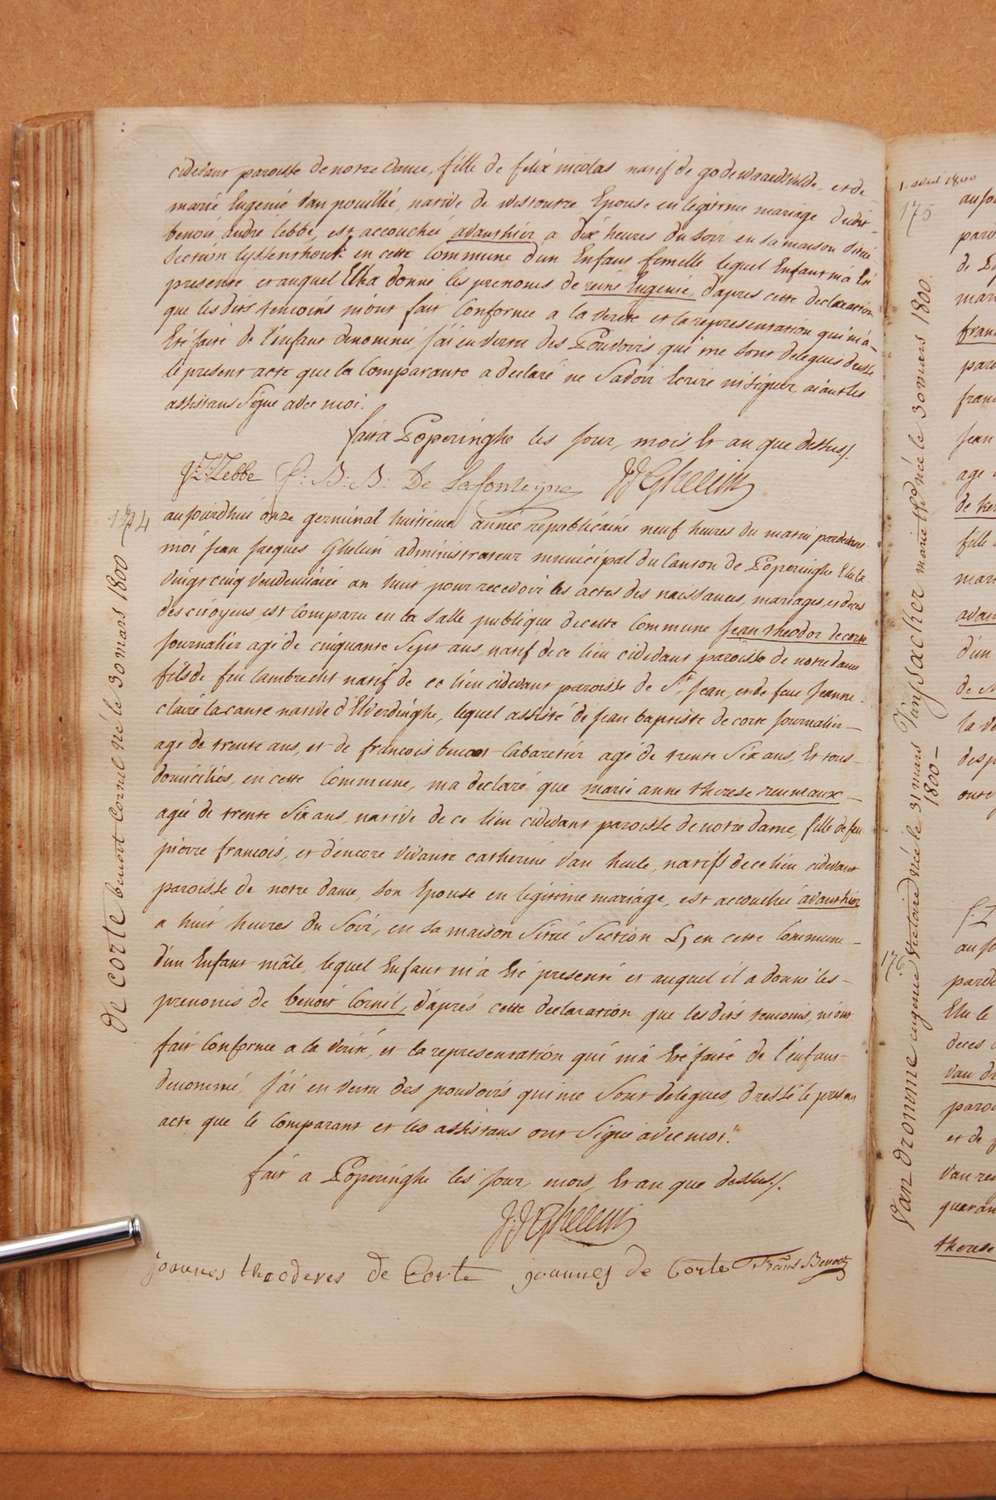 cidevant paroisse de notre dame, fille de felix nicolas natif de godewaersvelde, et de
marie Eugenie van pouillé, native de westoutre Epouse en legitime mariage dudit
benoit andre lebbe, est accouchée avanthier a dix heures du soir en sa maison située
section Lyssenthoek en cette commune d'un Enfant femelle lequel Enfant m'a Eté
presenté et auquel Elle a donné les prenoms de reine Eugenie, d'après cette declaration
que les dits temoins m'ont fait conforme a la verité et la representation qui m'a
Eté faite de l'enfant denommé, j'ai en vertu des Pouvoirs qui me sont delegués dressé
le present acte que la Comparante a declaré ne savoir Ecrire ni signer aiant les
assistans signé avec moi.
fait a Poperinghe les jour, mois Et an que dessus.
Lebbe P: B: B: De Lafonteyne J J Ghelein
174
aujourdhui onze germinal huitieme année republicaine neuf heures du matin pardevant
moi jean jacques Ghelein administrateur municipal du canton de Poperinghe Elu le
vingt cinq vendemiaire an huit pour recevoir les actes des naissances, mariages, et deces
des citoyens, est comparu en la salle publique de cette Commune jean theodor decorte
journalier agé de cinquante sept ans natif de ce lieu cidevant paroisse de notre dame
fils de feu lambrecht natif de ce lieu cidevant paroisse de St. jean, et de feue jeanne
claire lacante native d'Elverdinghe, lequel assisté de jean baptiste de corte journalier
agé de trente ans, et de francois benoot Cabaretier agé de trente six ans, Et tous
domiciliés, en cette Commune, m'a declaré que marie anne therese reumaux
agée de trente six ans, native de ce lieu cidevant paroisse de notre dame, fille de feu
pierre francois, et d'encore vivante catherine van heule, natifs de ce lieu cidevant
paroisse de notre dame, son Epouse en legitime mariage, est accouchée avanthier
a huit heures du soir, en sa maison située section G, en cette Commune
d'un Enfant mâle, lequel Enfant m'a Eté presenté et auquel il a donné les
prenoms de benoit Cornil, d'après cette declaration que les dits temoins m'ont
fait conforme a la verité, et la representation qui m'a Eté faite de l'enfant
denommé, j'ai en vertu des pouvoirs qui me sont delegués dressé le present
acte que le comparant et les assistans ont signé avec moi.
fait a Poperinghe les jour, mois, Et an que dessus.
J J Ghelein
joannes theoderes de Corte joannes de Corte Frans Benoot
de corte benoit Cornil né le 30 mars 1800
1 avril 1800
175
marie thérése née le 30 mars 1800.
van dromme eugenie née le 31 mars
1800